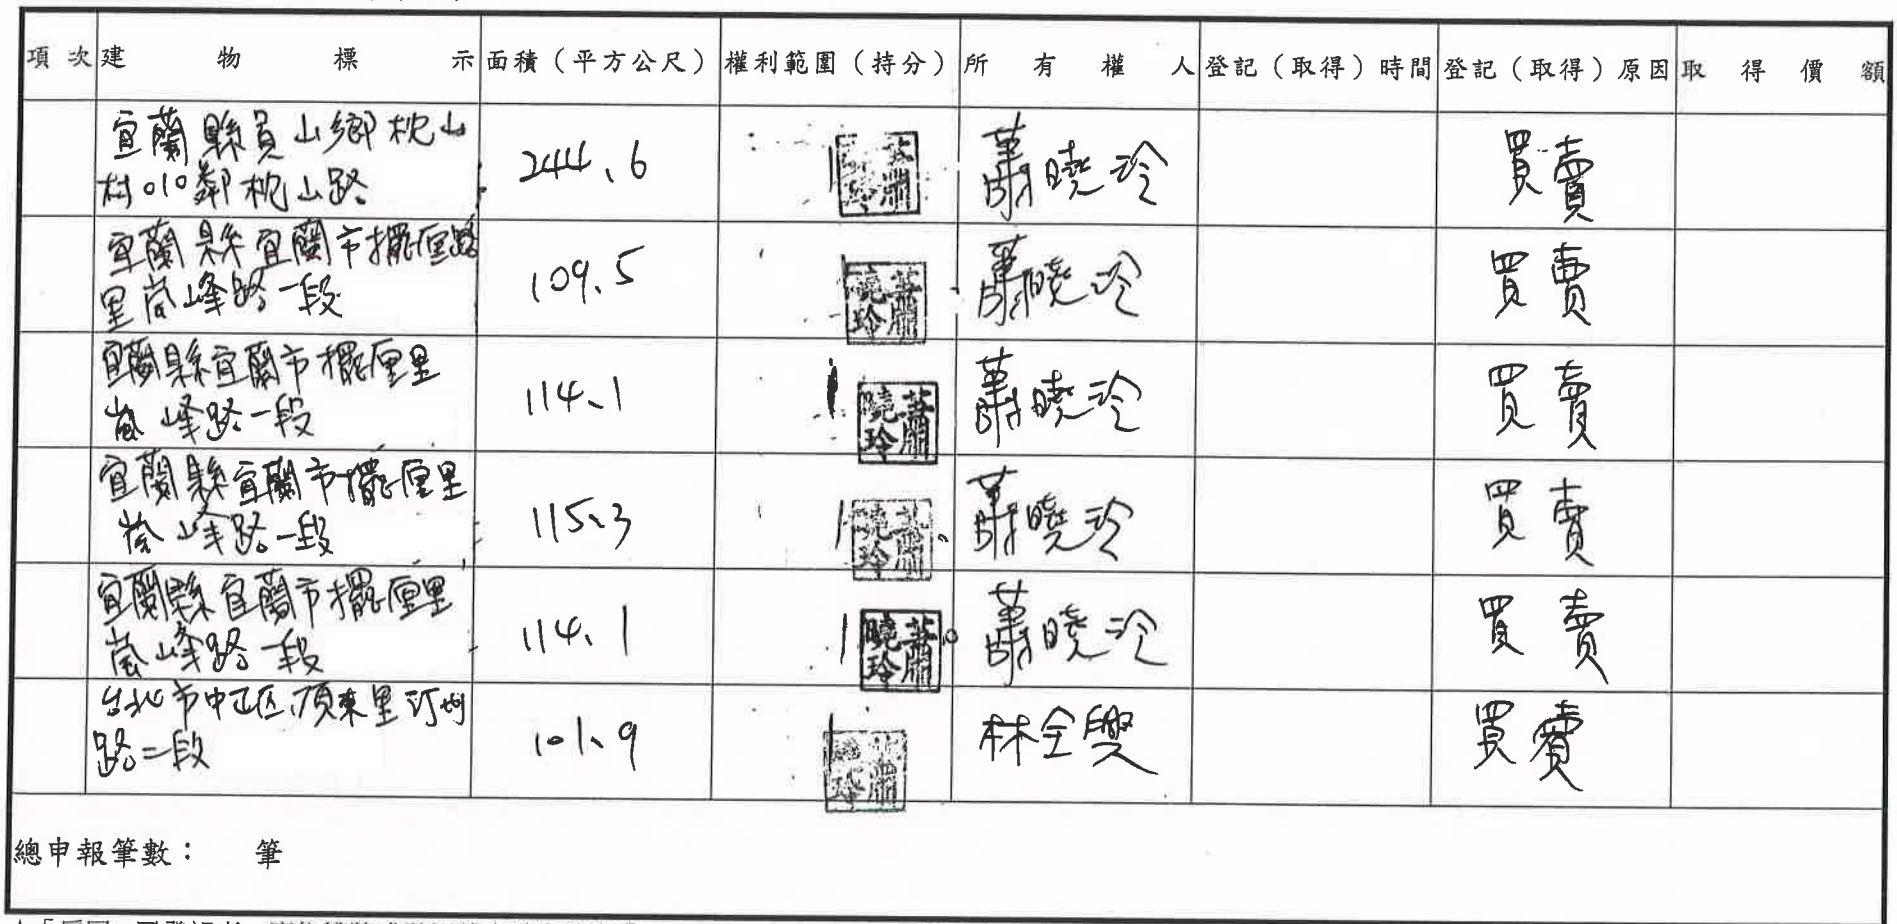 項次 建物標示 面積（平方公尺） 權利範圍（持分） 所有權人 登記（取得）時間 登記（取得）原因 取得價額
宜蘭縣員山鄉枕山
村010鄰枕山路
244.6 1 蕭曉玲 買賣
宜蘭縣宜蘭市擺厘路
里嵐峰路一段
109.5 蕭曉玲 買賣
宜蘭縣宜蘭市擺厘里
嵐峰路一段
114.1 1 蕭曉玲 買賣
宜蘭縣宜蘭市擺厘里
嵐峰路一段
115.3 1 蕭曉玲 買賣
宜蘭縣宜蘭市擺厘里
嵐峰路一段
114.1 1 蕭曉玲 買賣
台北市中正區頂東里汀州
路二段
101.9 1 林全 買賣
總申報筆數： 筆